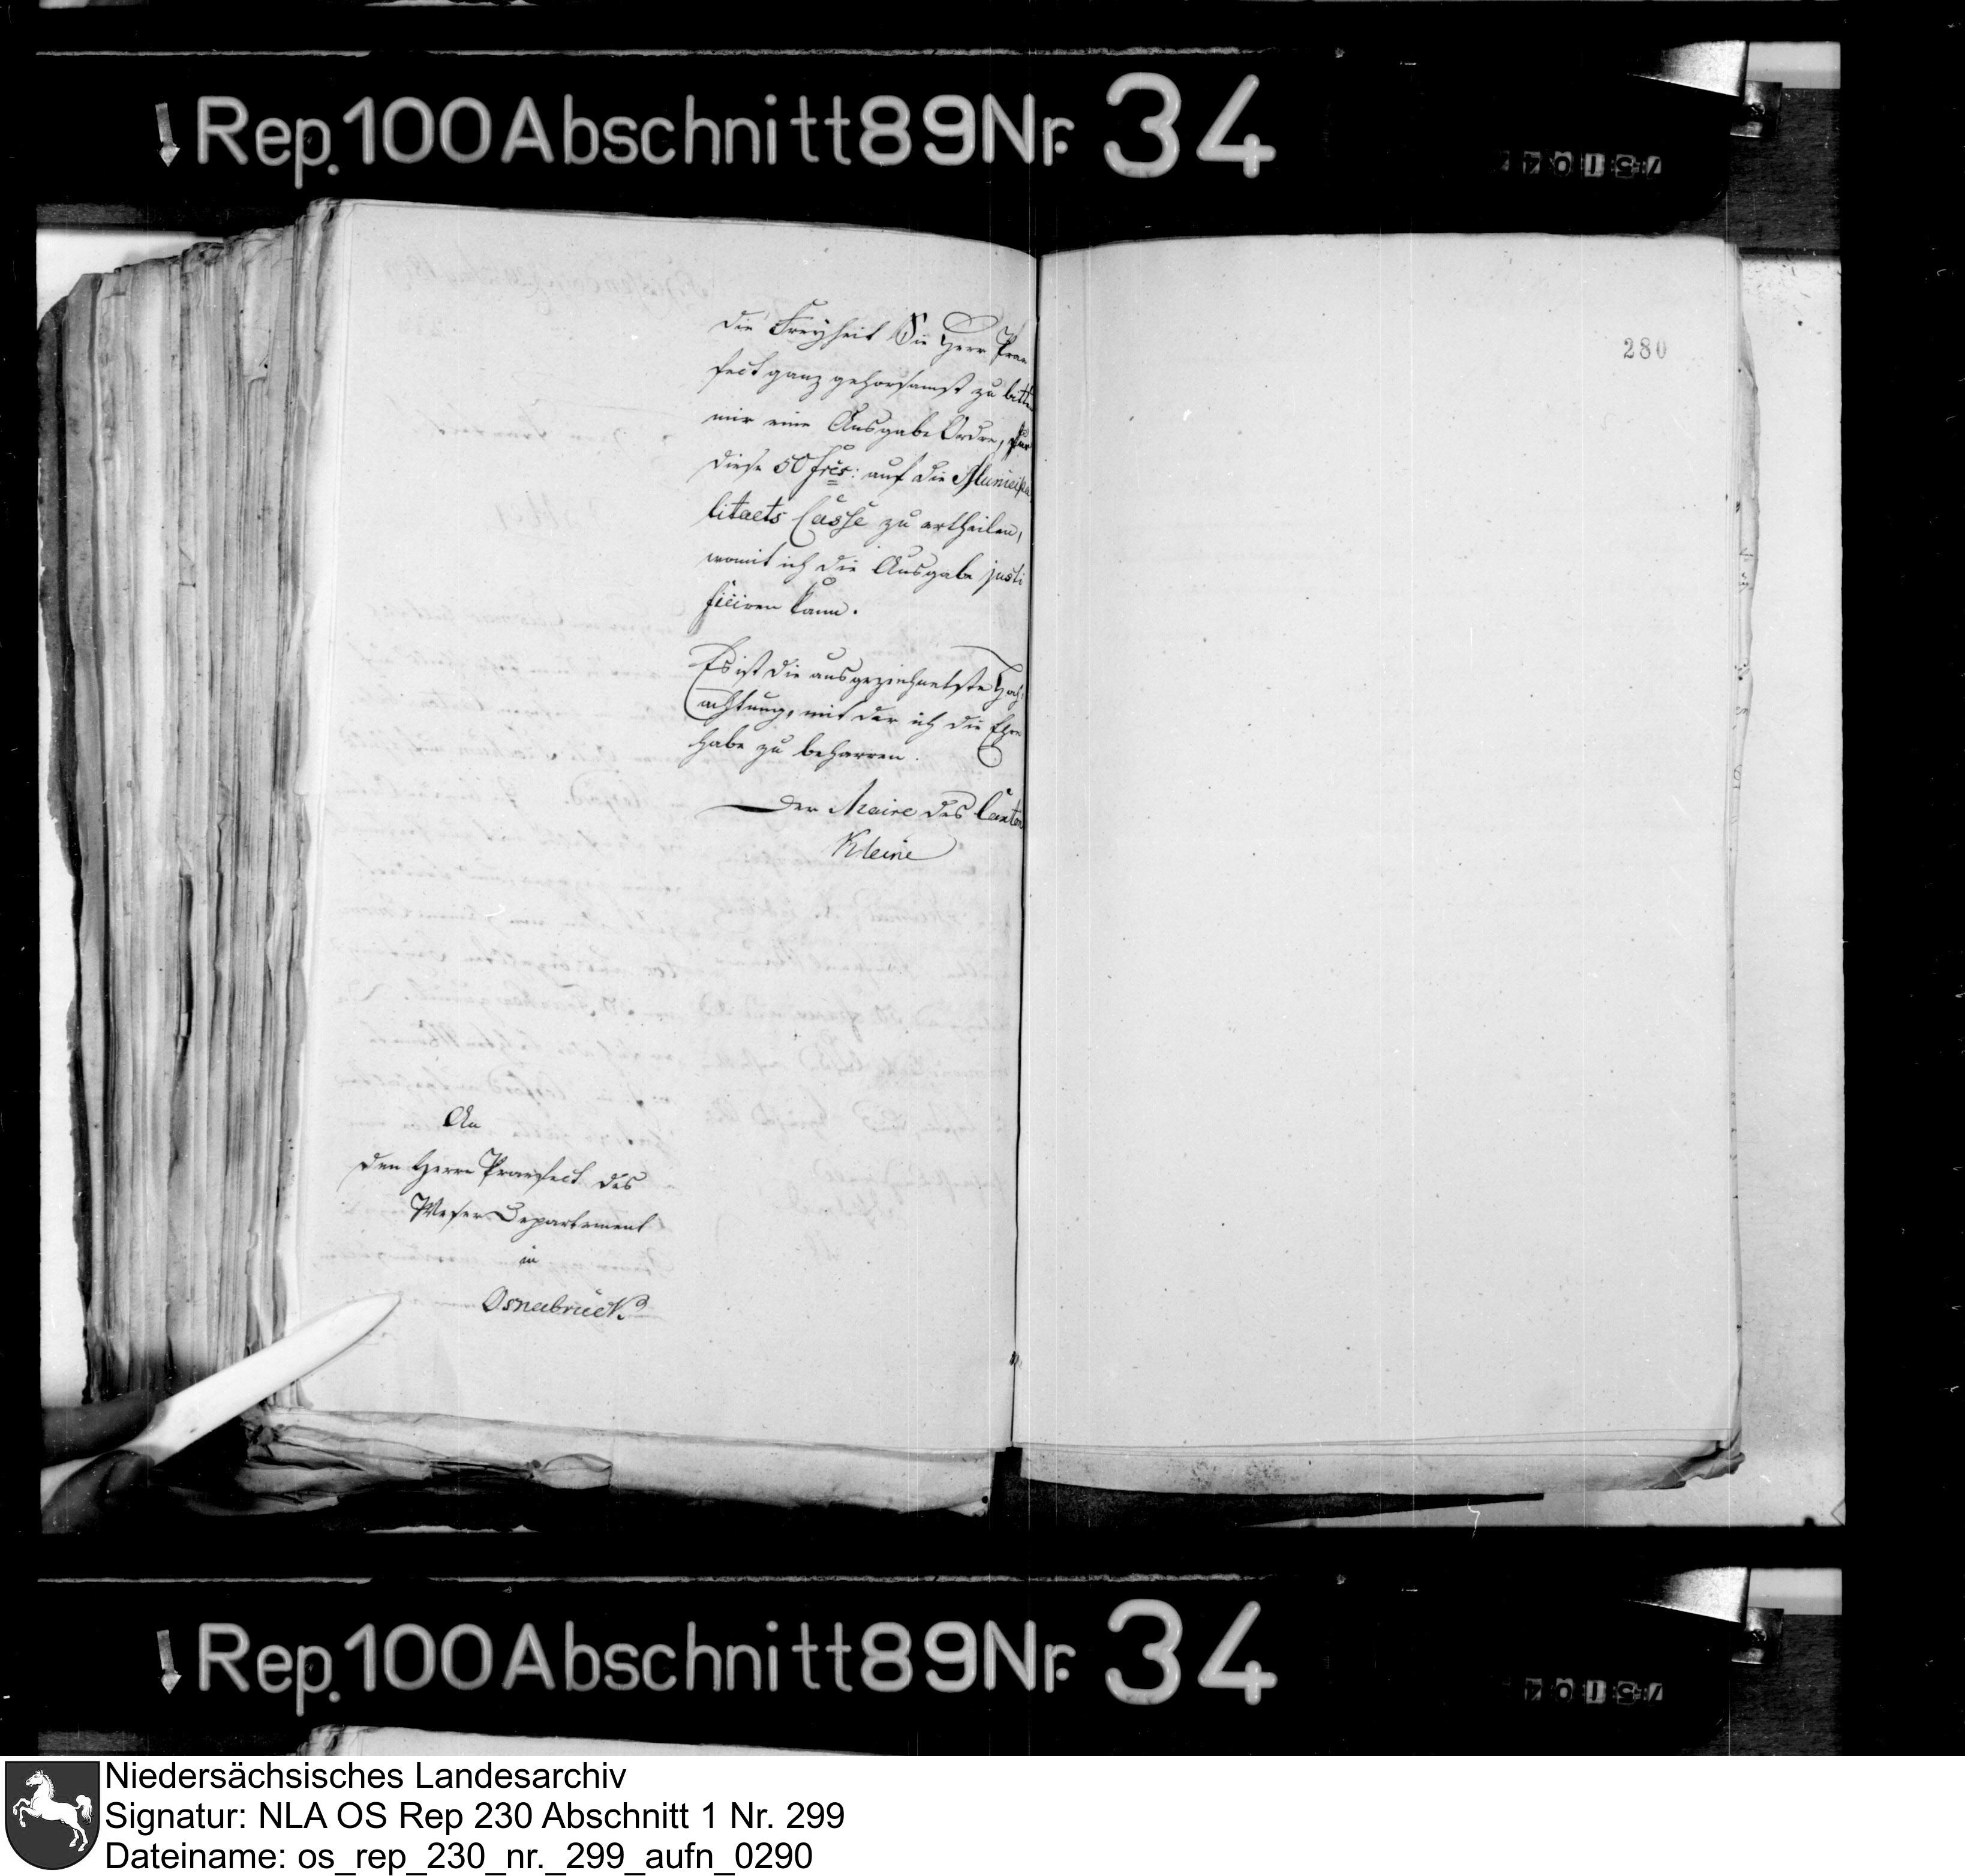 Rep. 100 Abschnitt 89 Nr. 34
280
die Freyheit Sie Herr Prae
fect ganz gehorsamst zu bitten
mir eine Ausgabe Ordre, für
diese 50 frcs: auf die Municipa
litaets Casse zu ertheilen,
womit ich die Ausgabe justi
ficiren kann.
Es ist die ausgezeichnetste Hoch
achtung, mit der ich die Ehre
habe zu beharren.
Der Maire des Canton
Kleine
An
den Herrn Praefect des
Weser Departement
in
Osnabrück
Rep. 100 Abschnitt 89 Nr. 34
Niedersächsisches Landesarchiv
Signatur: NLA OS Rep 230 Abschnitt 1 Nr. 299
Dateiname: os_rep_230_nr._299_aufn_0290